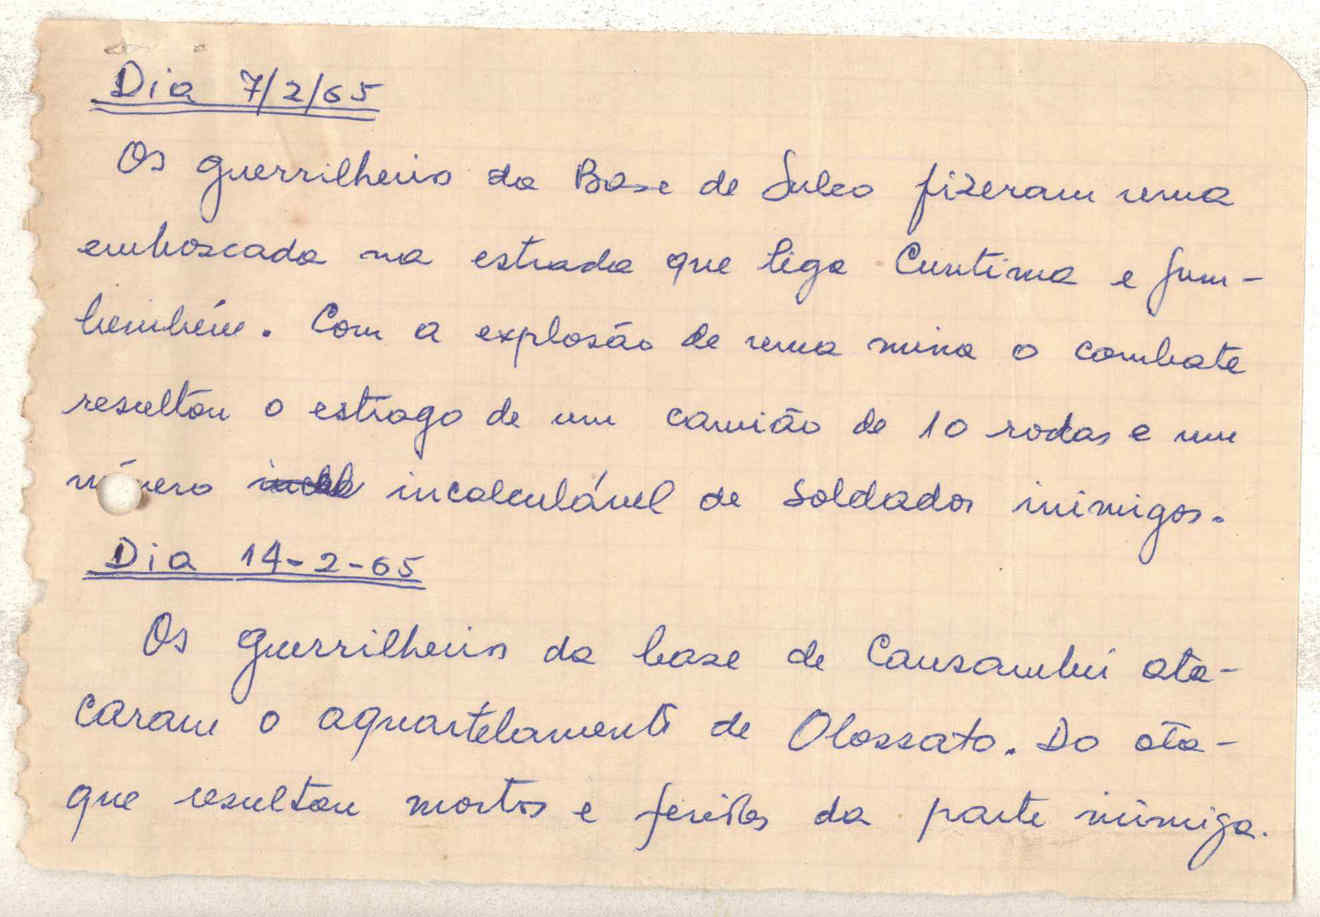 Dia 7/2/65
Os guerrilheiros da Base de Sulco fizeram uma
emboscada na estrada que liga Cuntima e Jum-
bembém. Com a explosão de uma mina o combate
resultou o estrago de um camião de 10 rodas e um
número incalculável de soldados inimigos.
Dia 14-2-65
Os guerrilheiros da base de Cansambui ata-
caram o aquartelamento de Olossato. Do ata-
que resultou mortos e feridos da parte inimiga.